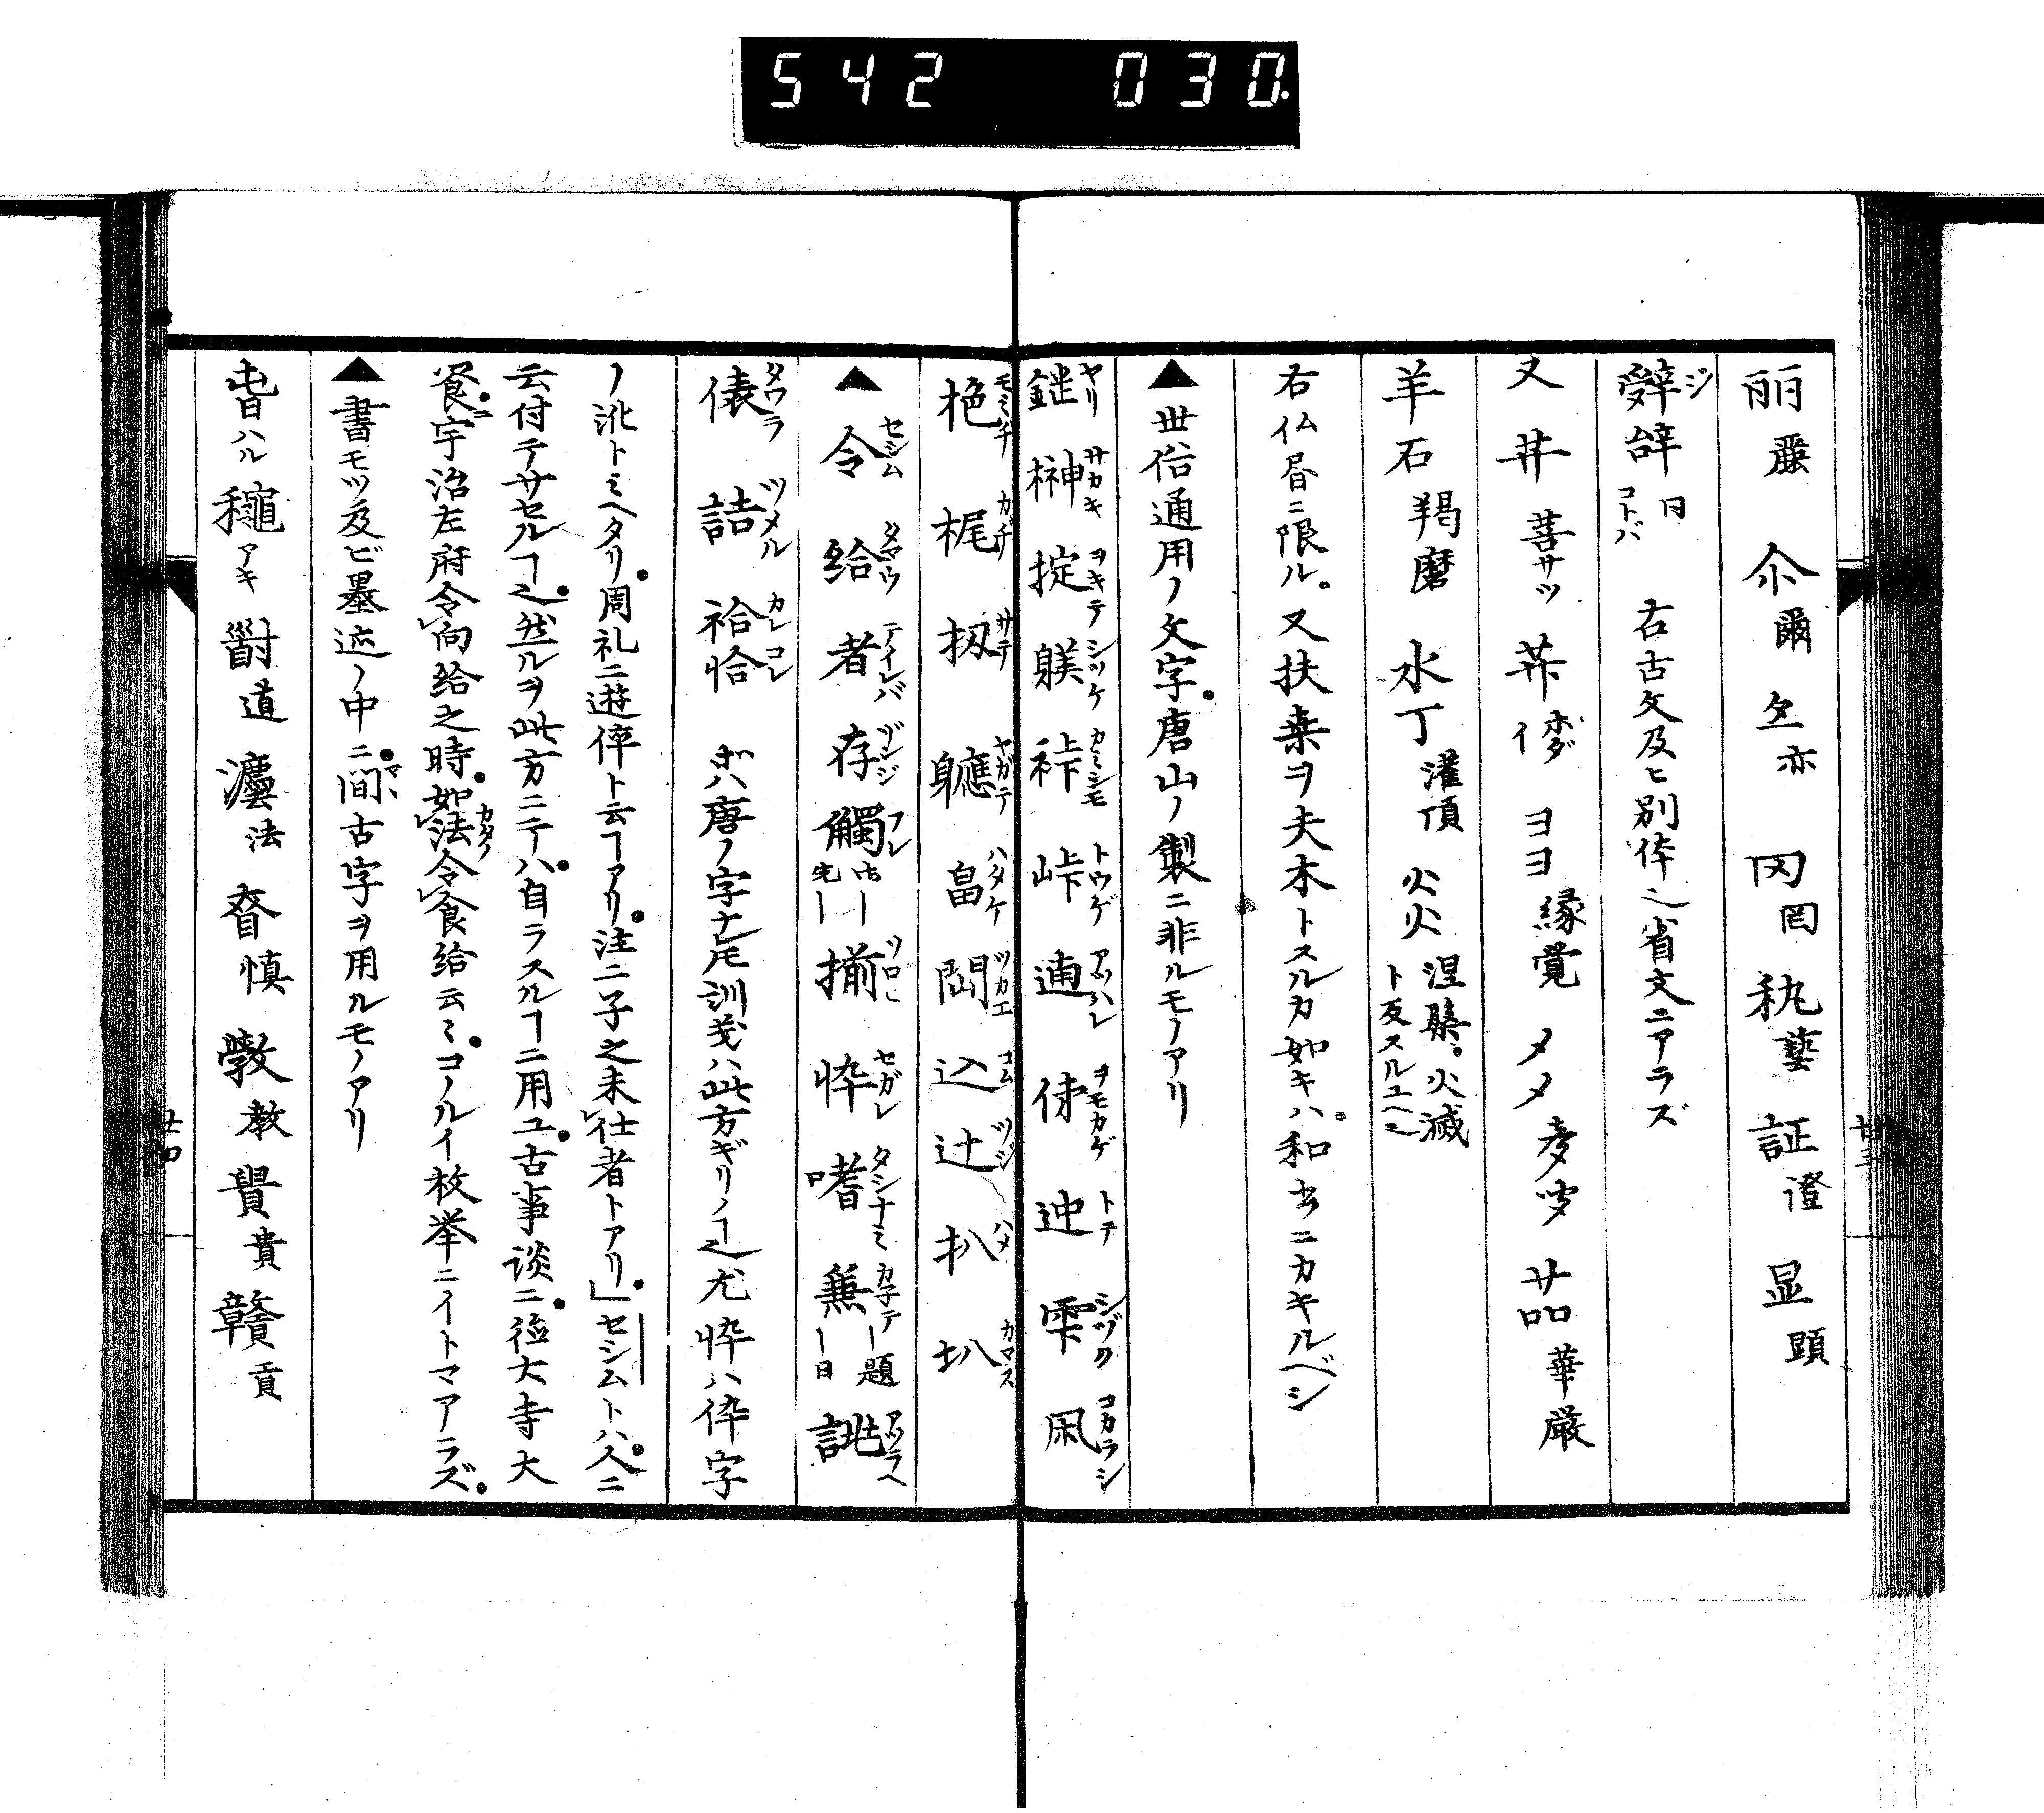 542 030
丽麗 尒爾 亦 冈罔 秇藝 証證 显顕
辤辞 ジ コトバ 右古文及ヒ別体也省文ニアラズ
又 菩サツ ヨヨ縁覚 メメ 華厳
羊石羯磨 水丁灌頂 火火 涅槃火滅ト反スルユヘ也
右仏書ニ限ル。又扶桒ヲ夫木トスルカ如キハ。和書ニカキルベシ
▲世俗通用ノ文字。唐山ノ製ニ非ルモノアリ
ヤリ 榊サカキ 掟ヲキテ 躾シツケ 裃カミシモ 峠トウゲ アッハレ 俤ヲモカゲ 迚トテ 雫シヅク 凩コカラシ
モミチ 梶カヂ 扨サテ 軈ヤガテ 畠ハタケ ツカエ 込コム 辻ツジ 扒 叺カマス
▲令セシム 給タマウ 者テイレバ 存ゾンジ 觸フレ 揃ソロヒ 悴セガレ 嗜タシナミ 兼カネテ 題 日 誂アツラヘ
俵タワラ 詰ツメル 袷恰カレコレ 等ハ唐ノ字ナレ𪜈訓義ハ此方ギリノヿ也尤悴ハ伜字
ノ訛トミヘタリ。周礼ニ遊倅ト云ヿアリ。注ニ子之未仕者トアリ」セシムトハ。人ニ
云付テサセルヿ也。然ルヲ此方ニテハ。自ラスルヿニ用ユ。古事談ニ。徳大寺大
饗ニ。宇治左府令向給之時。如法カタノ令食給云〻。コノルイ枚挙ニイトマアラズ。
▲書モツ及ビ墨迹ノ中ニ。間マヽ古字ヲ用ルモノアリ
旾ハル 龝アキ 道 灋法 昚慎 斆教 貴 贛貢
廿三
廿四